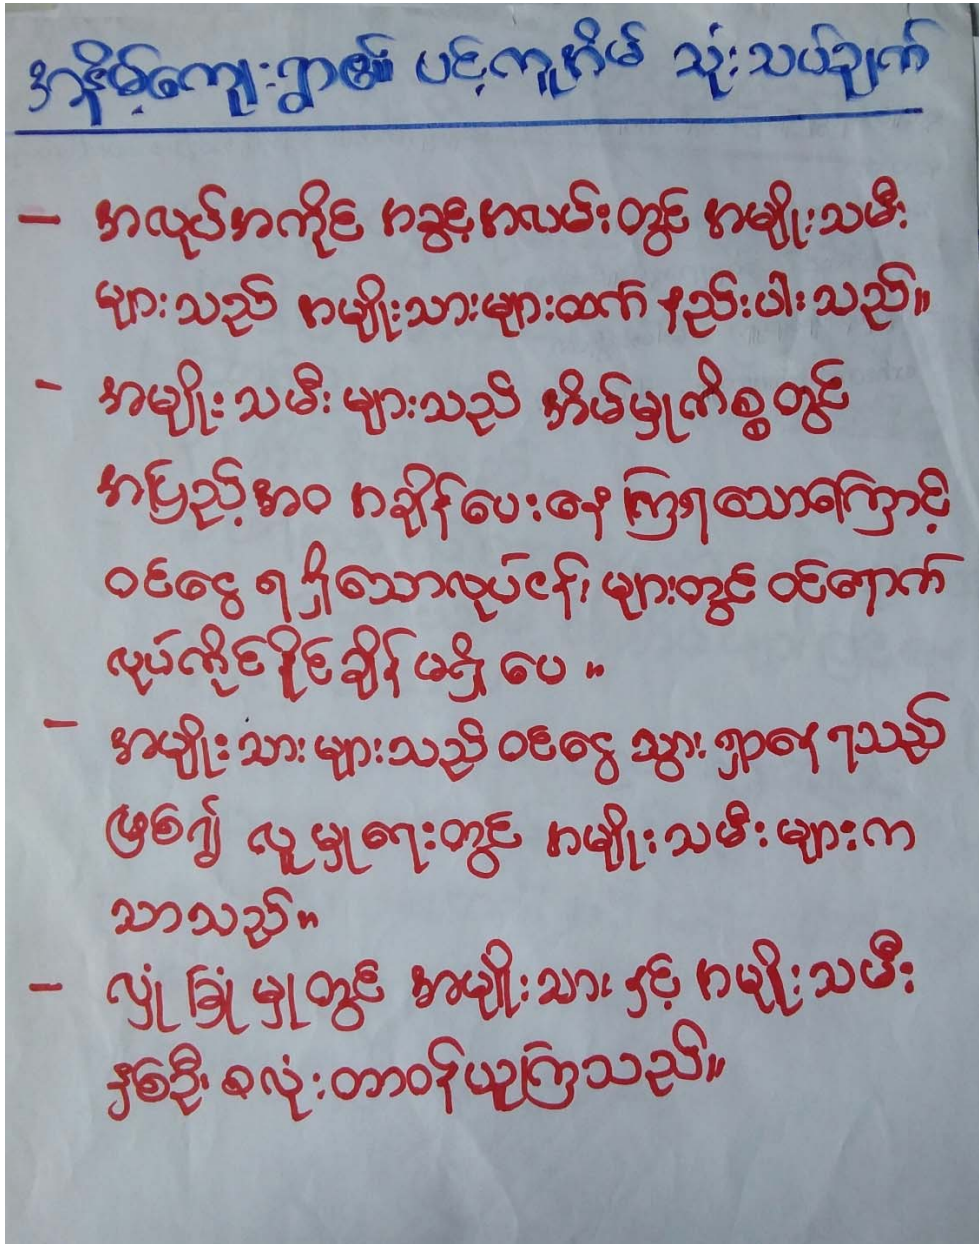 အနိမ့်ကျေးရွာ၏ ပင့်ကူအိမ် သုံးသပ်ချက်
- အလုပ်အကိုင် အခွင့်အလမ်းတွင် အမျိုးသမီး
များသည် အမျိုးသားများထက် နည်းပါးသည်။
- အမျိုးသမီးများသည် အိမ်မှုကိစ္စတွင်
အပြည့်အဝ အချိန်ပေးနေကြရသောကြောင့်
ဝင်ငွေရရှိသောလုပ်ငန်းများတွင် ဝင်ရောက်
လုပ်ကိုင်နိုင်ချိန်မရှိပေ။
- အမျိုးသားများသည် ဝင်ငွေသွားရှာနေရသည်
ဖြစ်၍ လူမှုရေးတွင် အမျိုးသမီးများက
သာသည်။
- လုံခြုံမှုတွင် အမျိုးသား နှင့် အမျိုးသမီး
နှစ်ဦးစလုံးတာဝန်ယူကြသည်။